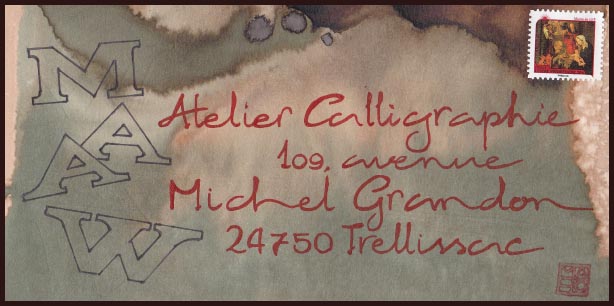 MAAW
Atelier Calligraphie
109, avenue
Michel Grandon
24750 Trellissac